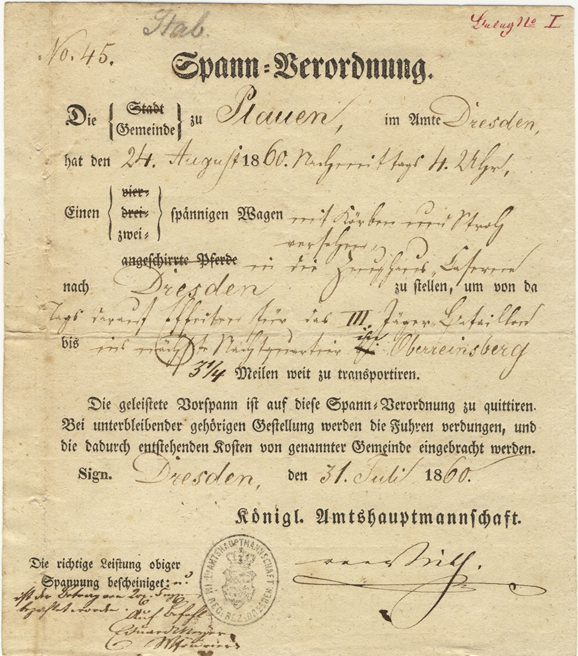 Stab.
Beleg No I
No. 45.
Spann-Verordnung.
Die Stadt Gemeinde zu Plauen, im Amte Dresden,
hat den 24. August 1860. Nachmittags 4. Uhr,
Einen vier- drei- zwei- spännigen Wagen mit Körben und Stroh
versehen,
angeschirrte Pferde in die Zeughaus Caserne
nach Dresden zu stellen, um von da
Tags darauf Effecten für das III Jäger-Bataillon
bis ins nächste Nachtquartier Oberreinsberg
3 1/4 Meilen weit zu transportiren.
Die geleistete Vorspann ist auf diese Spann-Verordnung zu quittiren.
Bei unterbleibender gehörigen Gestellung werden die Fuhren verdungen, und
die dadurch entstehenden Kosten von genannter Gemeinde eingebracht werden.
Sign. Dresden, den 31. Juli 1860.
Königl. Amtshauptmannschaft.
Die richtige Leistung obiger
Spannung bescheiniget: u
ist der Betrag von
bezahlt worden.
Auf Befehl
Eduard Meyer